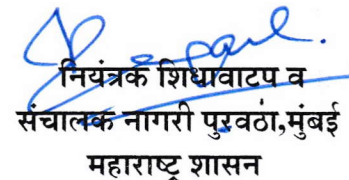 नियंत्रक शिधावाटप व
संचालक नागरी पुरवठा,मुंबई
महाराष्ट्र शासन